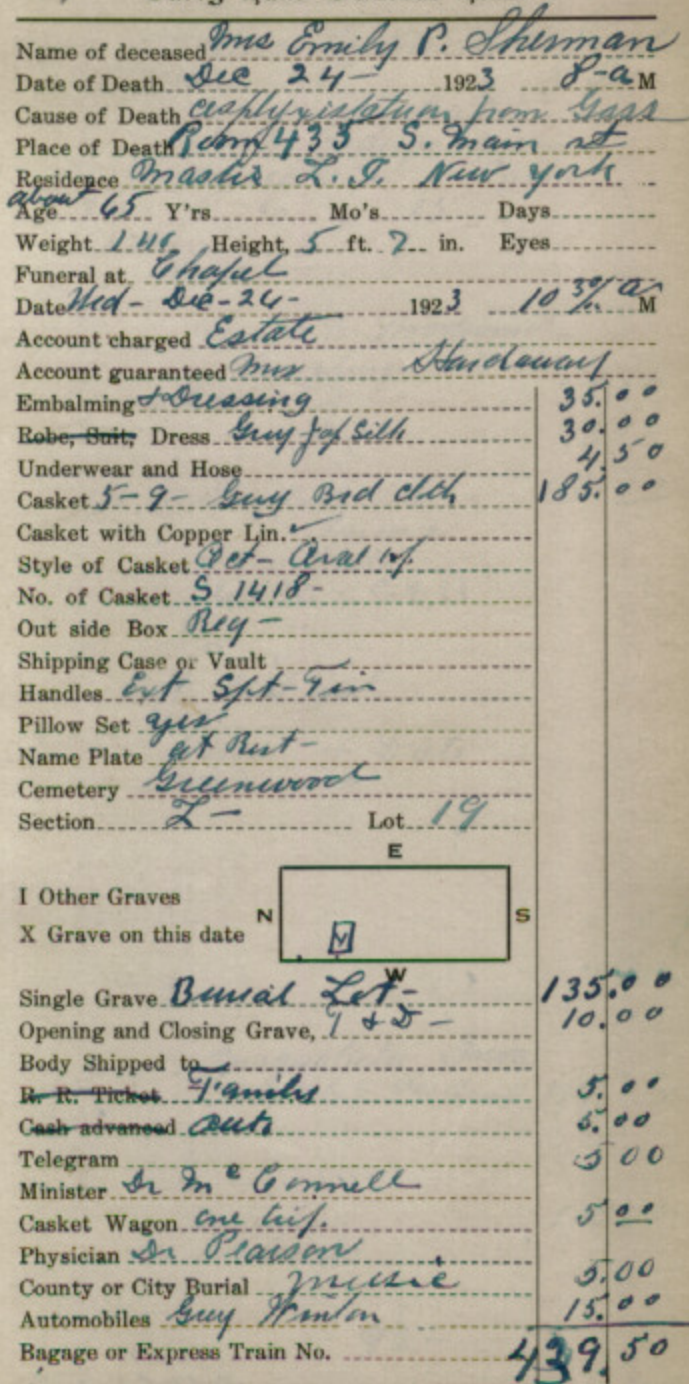 Name of deceased Mrs Emily P. Sherman
Date of Death Dec 24 - 1923 8 - a M
Cause of Death from Gass
Place of Death Room 435 S. Main st
Residence L. I. New York
about
Age 65 Y'rs. Mo's Days
Weight 140 Height, 5 ft. 7 in. Eyes
Funeral at Chapel
Date Wed - Dec - 26 - 1923 10 30/ a M
Account charged Estate
Account guaranteed Mrs Hardaway
Embalming & Dressing 35.00
Robe, Suit, Dress Grey Jap Silk 30.00
Underwear and Hose 4.50
Casket 5-9- Grey Brd clth 185.00
Casket with Copper Lin.
Style of Casket Oct - Oval
No. of Casket S 1418 -
Out side Box Reg -
Shipping Case or Vault
Handles Ext Spt - Tin
Pillow Set yes
Name Plate At Rest -
Cemetery Greenwood
Section L - Lot 19
E
I Other Graves
N S
X Grave on this date
W
Single Grave Burial Lot - 135.00
Opening and Closing Grave, T & D - 10.00
Body Shipped to
R. R. Ticket Family 5.00
Cash advanced auto 5.00
Telegram 5 00
Minister Dr McConnell
Casket Wagon one 5 00
Physician Dr Pearson
County or City Burial music 5.00
Automobiles Grey 15.00
Bagage or Express Train No. 439.50